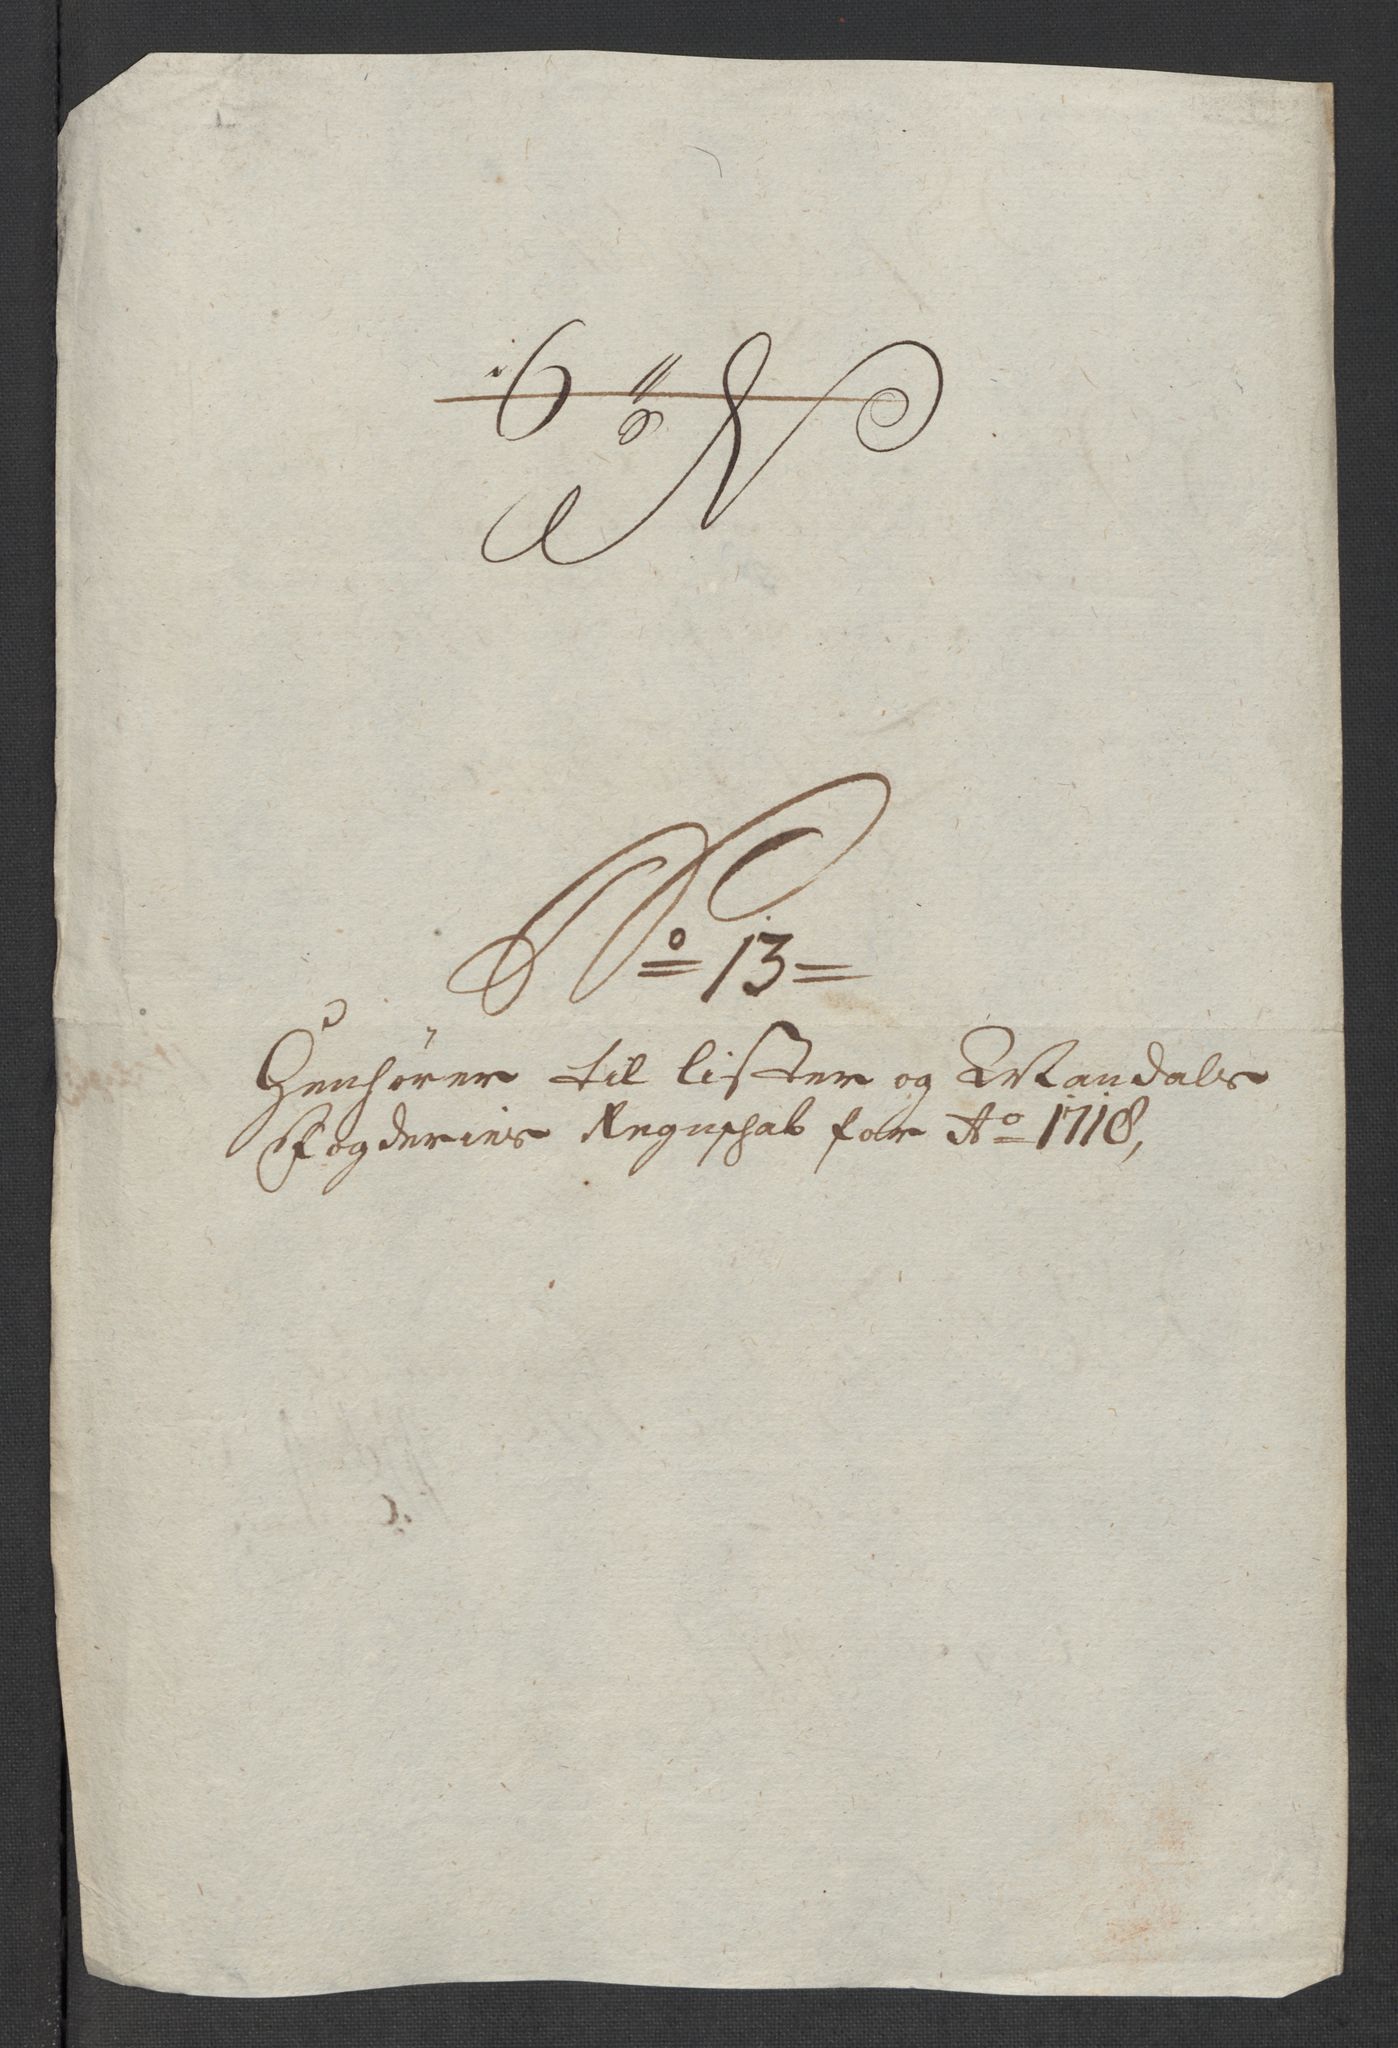 No 13
Henhører til lister og Mandals
Fogderies Regnschab for Ao 1718,